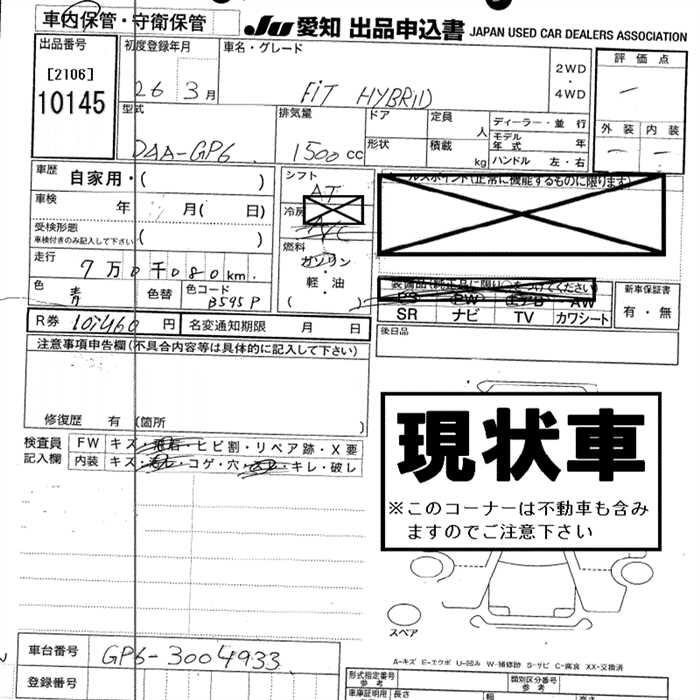 車内保管・守衛保管
JU 愛知 出品申込書 JAPAN USED CAR DEALERS ASSOCIATION
出品番号 初度登録年月 車名・グレード 評価点
[2106] 2WD
10145 26 3月 FIT HYBRID ・ 4WD —
型式 排気量 ドア 定員 人 ディーラー・並行 外装 内装
モデル年式 年
DAA-GP6 1500cc 形状 積載 kg ハンドル 左・右 — —
車歴 自家用・( ) シフト AT
車検 年 月( 日) 冷房 A/C
受検形態 車検付きのみ記入して下さい ( ) 燃料 ガソリン・軽・油 ( )
走行 7万0千080km.
色 青 色替 色コード B595P
セールスポイント(正常に機能するものに限ります)
装備品(純正品に限り○をつけてください) 新車保証書
PS PW エアB AW 有・無
SR ナビ TV カワシート
R券 10,460円 名変通知期限 月 日 後日品
注意事項申告欄(不具合内容等は具体的に記入して下さい)
修復歴 有 (箇所 )
検査員 FW キズ・飛石・ヒビ割・リペア跡・X要
記入欄 内装 キズ・汚レ・コゲ・穴・スレ・キレ・破レ
現状車
※このコーナーは不動車も含み
ますのでご注意下さい
スペア
A-キズ E-エクボ U-凹み W-補修跡 S-サビ C-腐食 XX-交換済
車台番号 GP6-3004933
登録番号
形式指定番号 参考 類別区分番号 参考
車庫証明用 長さ 幅 高さ